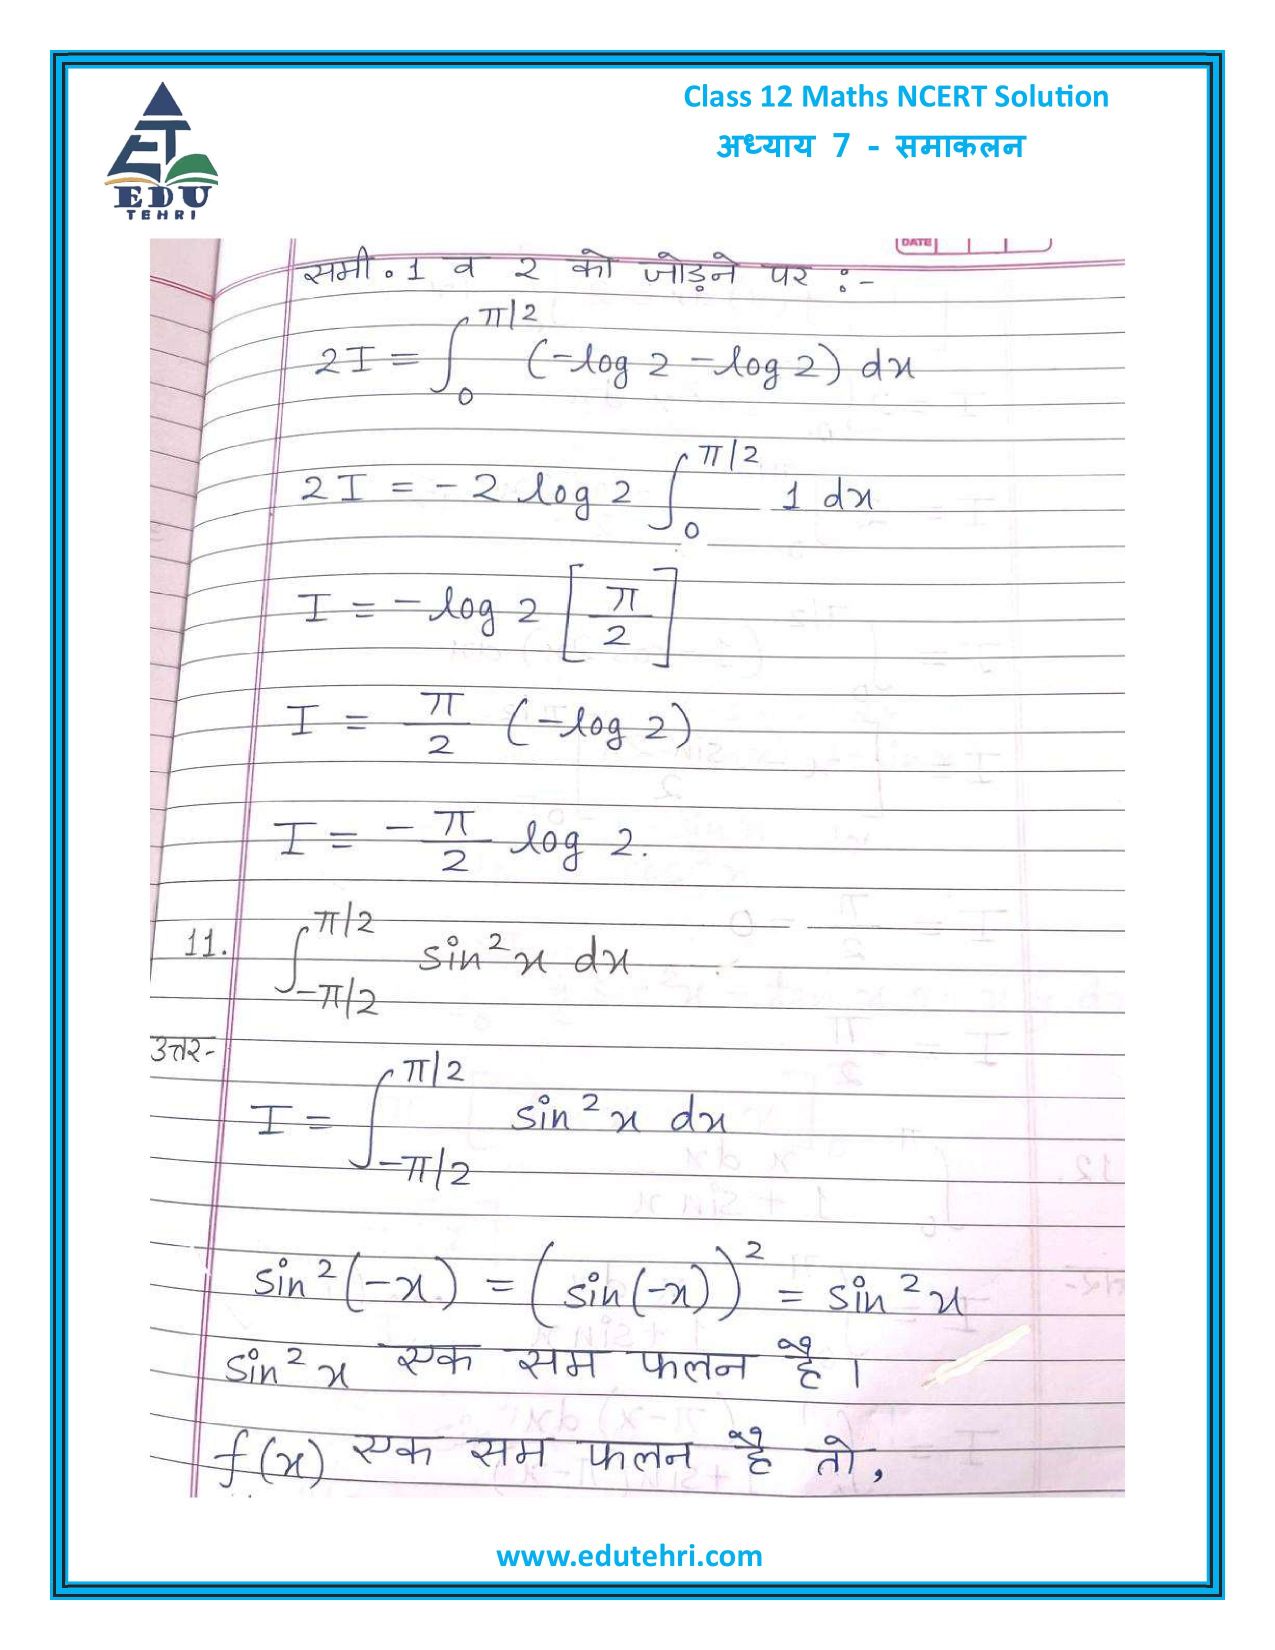 Class 12 Maths NCERT Solution
अध्याय 7 - समाकलन
EDU
TEHRI
DATE
समी. 1 व 2 को जोड़ने पर :-
2I = ∫₀^{π/2} (-log 2 - log 2) dx
2I = -2 log 2 ∫₀^{π/2} 1 dx
I = -log 2 [π/2]
I = π/2 (-log 2)
I = -π/2 log 2.
11. ∫_{-π/2}^{π/2} sin²x dx
उत्तर-
I = ∫_{-π/2}^{π/2} sin²x dx
sin²(-x) = (sin(-x))² = sin²x
sin²x एक सम फलन है।
f(x) एक सम फलन है तो,
www.edutehri.com